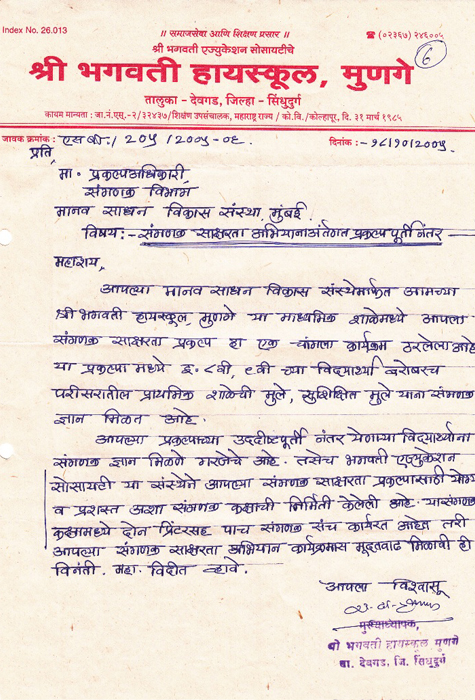 Index No. 26.013
॥ समाजसेवा आणि शिक्षण प्रसार ॥
☎ (०२३६७) २४६००५
श्री भगवती एज्युकेशन सोसायटीचे
६
श्री भगवती हायस्कूल, मुणगे
तालुका - देवगड, जिल्हा - सिंधुदुर्ग
कायम मान्यता : जा.नं.एस्.-२/३२४३७/शिक्षण उपसंचालक, महाराष्ट्र राज्य / को.वि./कोल्हापूर, दि. ३१ मार्च १९८५
जावक क्रमांक : एसबी/ २०५ / २००५-०६.
दिनांक :- १८/१०/२००५.
प्रति,
मा. प्रकल्पअधिकारी,
संगणक विभाग
मानव साधन विकास संस्था, मुंबई.
विषय:- संगणक साक्षरता अभियानाअंतर्गत प्रकल्पपूर्ती नंतर
महाशय,
आपल्या मानव साधन विकास संस्थेमार्फत आमच्या
श्री भगवती हायस्कूल, मुणगे या माध्यमिक शाळेमध्ये आपला
संगणक साक्षरता प्रकल्प हा एक चांगला कार्यक्रम ठरलेला आहे
या प्रकल्पा मध्ये इ. ८वी, ९वी च्या विद्यार्थ्यां बरोबरच
परीसरातील प्राथमिक शाळेची मुले, सुशिक्षित मुले यांना संगणक
ज्ञान मिळत आहे.
आपल्या प्रकल्पाच्या उद्दीष्टपूर्ती नंतर येणाऱ्या विद्यार्थ्यांना
संगणक ज्ञान मिळणे गरजेचे आहे. तसेच भगवती एज्युकेशन
सोसायटी या संस्थेने आपल्या संगणक साक्षरता प्रकल्पासाठी योग्य
व प्रशस्त अशा संगणक कक्षाची निर्मिती केलेली आहे. या संगणक
कक्षामध्ये दोन प्रिंटरसह पाच संगणक संच कार्यरत आहेत तरी
आपल्या संगणक साक्षरता अभियान कार्यक्रमास मुदतवाढ मिळावी ही
विनंती. महा. विदीत व्हावे.
आपला विश्वासू
मुख्याध्यापक,
श्री भगवती हायस्कूल मुणगे
ता. देवगड, जि. सिंधुदुर्ग